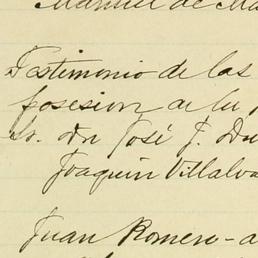 Manuel de Ma
Testimonio de las
posesion de la
Sr. Dn José J. Du
Joaquin Villalva
Juan Romero - a